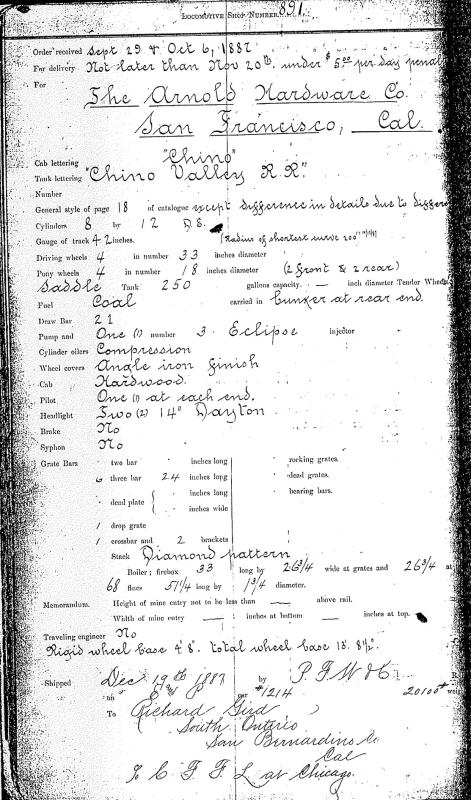 LOCOMOTIVE SHOP NUMBER 891
Order received Sept 29 & Oct 6, 1887
For delivery Not later than Nov 20th under $5.00 per day penal
For The Arnold Hardware Co.
San Francisco, Cal.
Cab lettering "Chino"
Tank lettering "Chino Valley R.R."
Number
General style of page 18 of catalogue except difference in details due to differe
Cylinders 8 by 12 D.S.
Gauge of track 42 inches. (Radius of shortest curve 200'
Driving wheels 4 in number 33 inches diameter
Pony wheels 4 in number 18 inches diameter (2 front & 2 rear)
Saddle Tank 250 gallons capacity. — inch diameter Tender Wheels
Fuel Coal carried in bunker at rear end.
Draw Bar 21
Pump and One (1) number 3 Eclipse injector
Cylinder oilers Compression
Wheel covers Angle iron finish
Cab Hardwood.
Pilot One (1) at each end.
Headlight Two (2) 14" Dayton
Brake No
Syphon No
Grate Bars two bar inches long rocking grates.
6 three bar 24 inches long dead grates.
dead plate { inches long bearing bars.
inches wide
1 drop grate
1 crossbar and 2 brackets
Stack Diamond pattern
Boiler; firebox 33 long by 26 3/4 wide at grates and 26 3/4 at
68 flues 51 1/4 long by 1 3/4 diameter.
Memorandum. Height of mine entry not to be less than — above rail.
Width of mine entry — inches at bottom — inches at top.
Traveling engineer No
Rigid wheel base 4' 8". total wheel base 13' 8 1/2".
Shipped Dec 19th 1887 by P.F.W & C.
on car #1214 20100#
To Richard Gird
South Ontario
San Bernardino Co
Cal
% C F F L at Chicago.